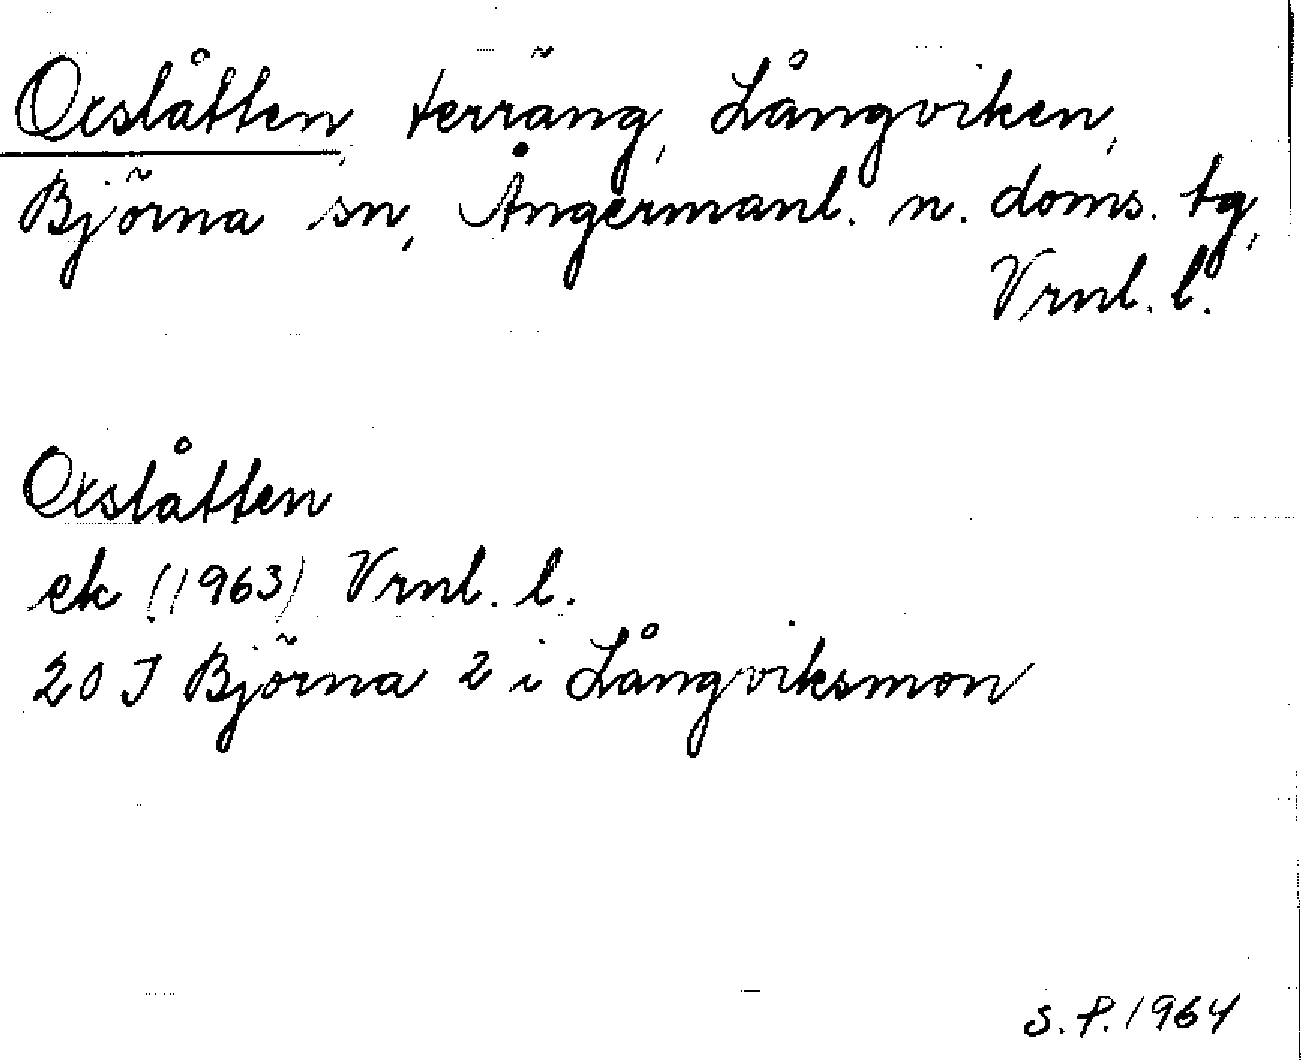 Oxslåtten, terräng, Långviken,
Björna sn, Ångermanl. n. doms. tg,
Vrnl. l.
Oxslåtten
ek (1963) Vrnl. l.
20 J Björna 2 i Långviksmon
S. P. 1964